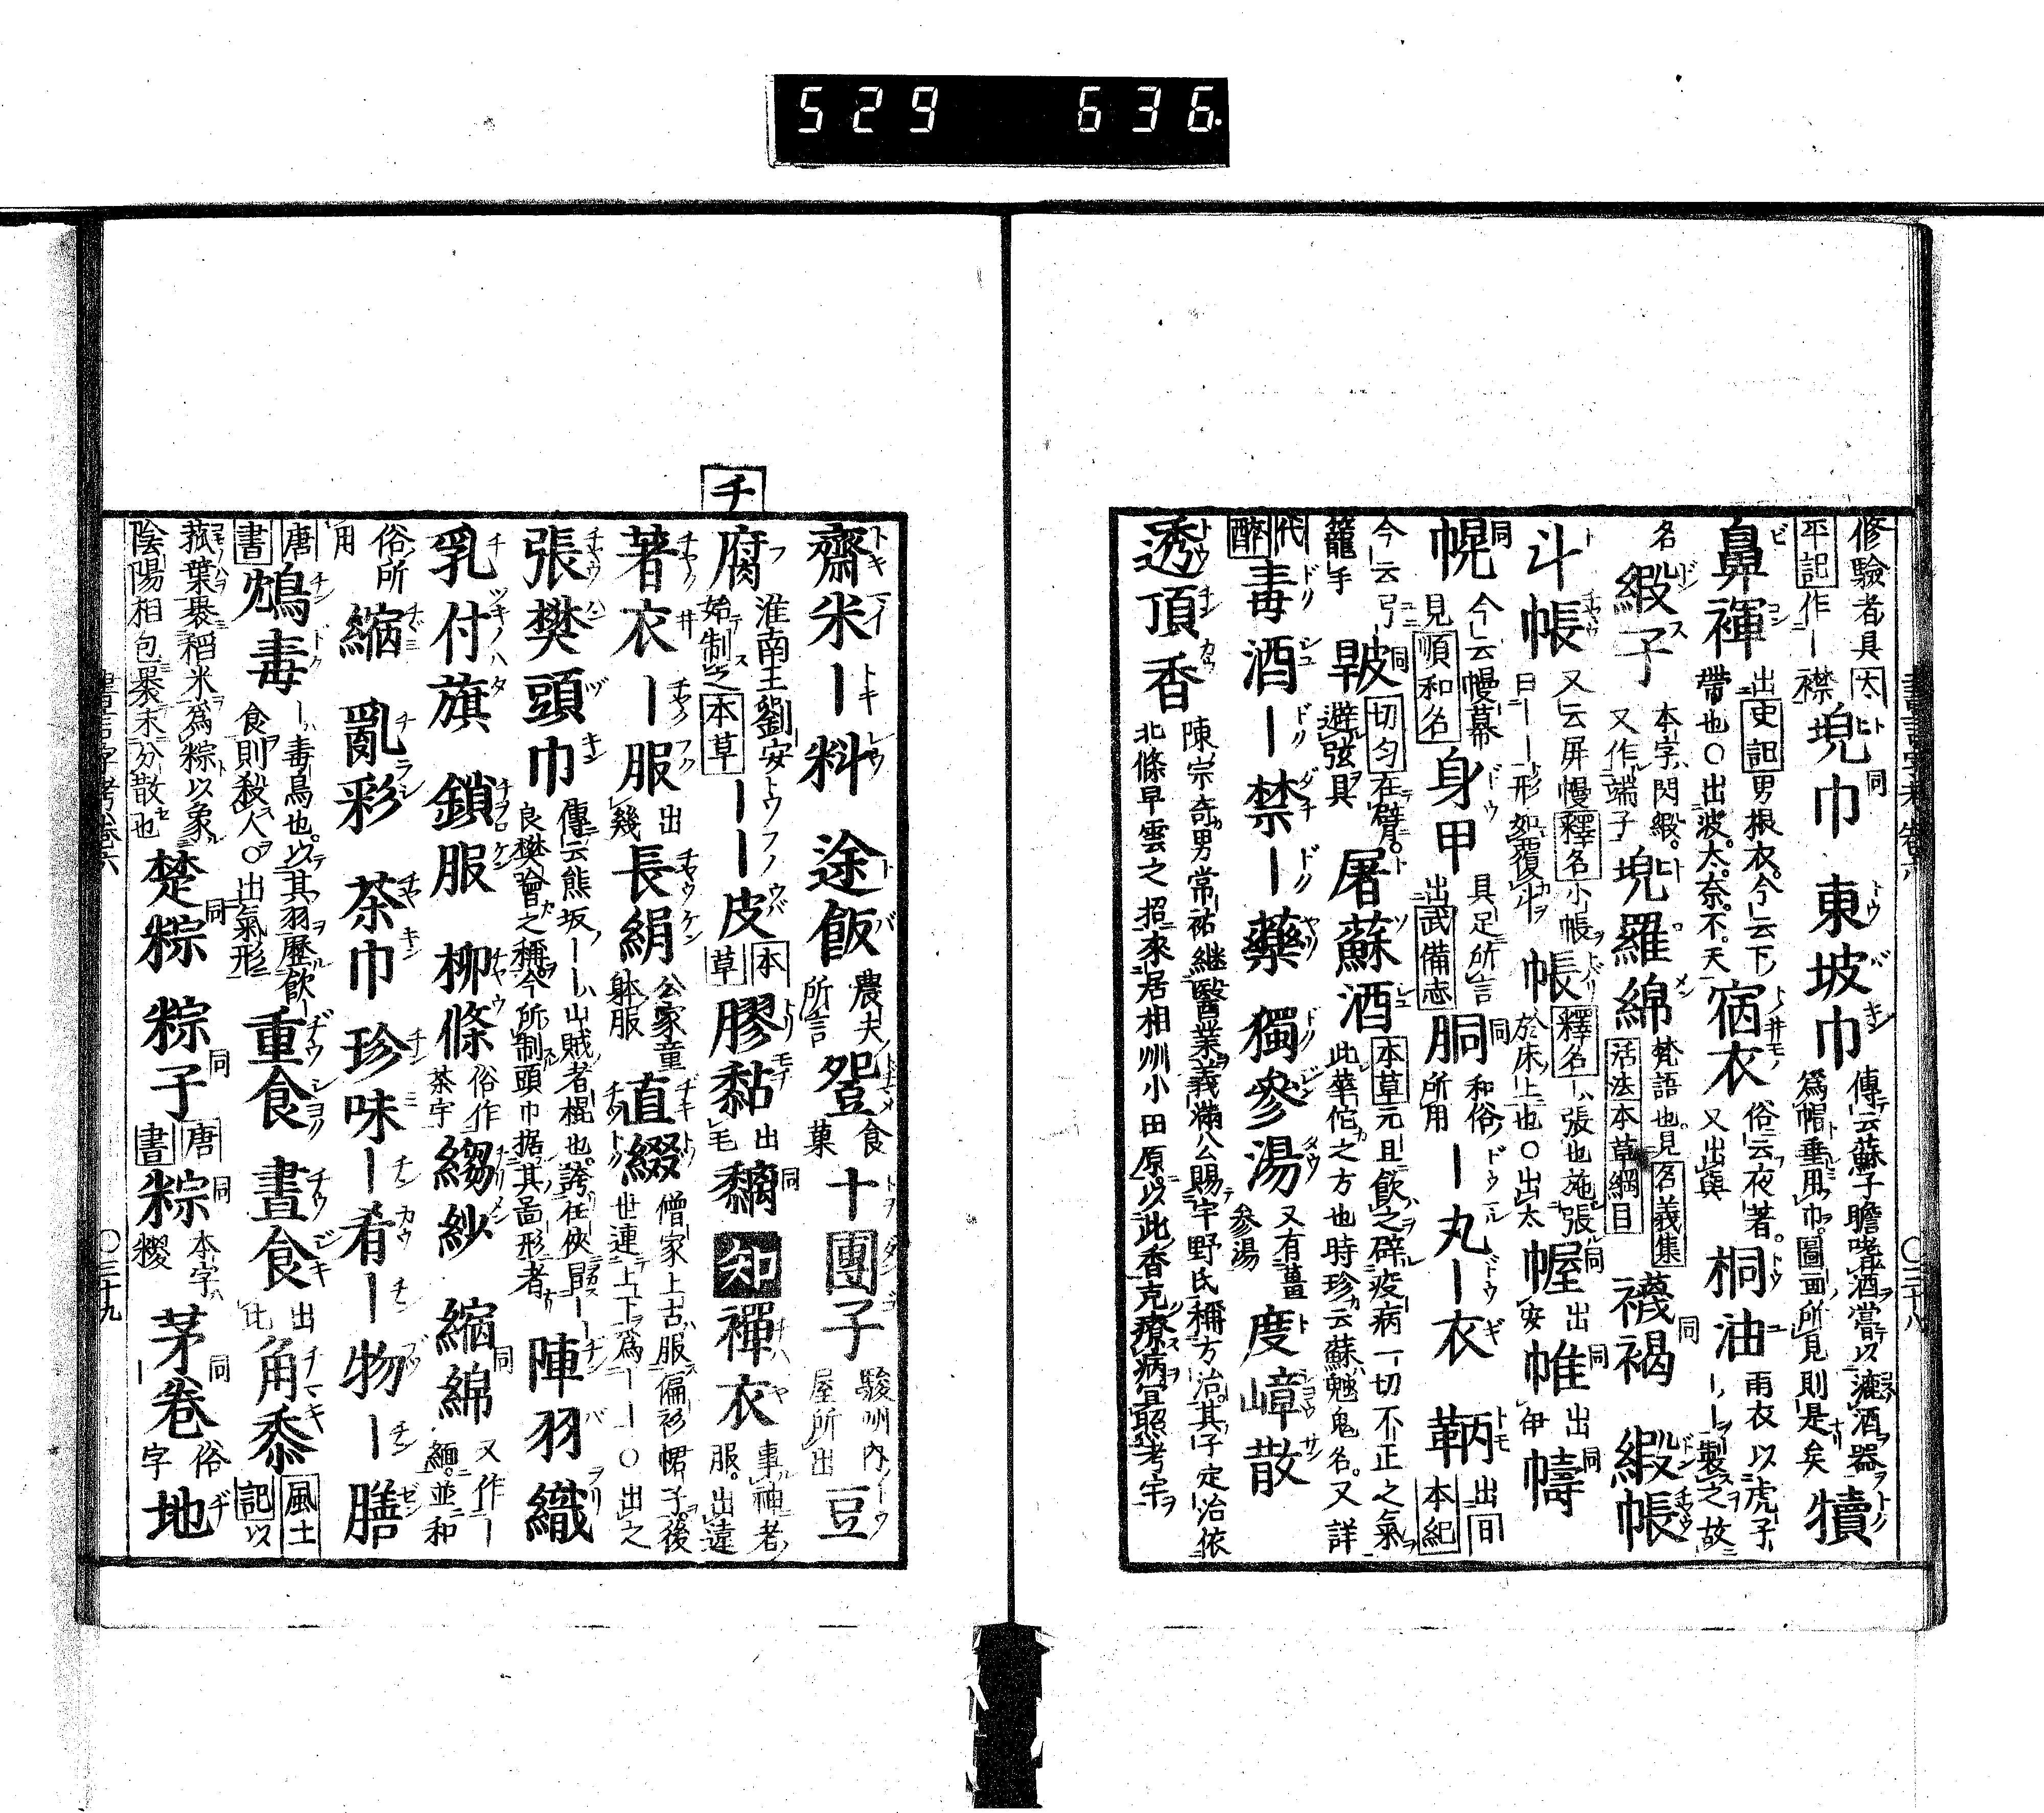 529 636.
修驗者具太平記作ー襟 兜巾同 東坡巾 傳云蘇子瞻嗜酒嘗以漉酒器爲帽垂用巾圖画所見則是矣 犢
鼻褌 出史記男根衣今云下帶也○出波太奈不天 宿衣 俗云夜著又出與 桐油 雨衣以虎子ーー製之故
名 緞子 本字閃緞又作端子 兜羅綿 梵語也見名義集活法本草綱目 襪褐同 緞帳
斗帳 又云屏幔釋名小帳曰ーー形如覆斗 帳 釋名ーハ張也施張於床上也○出太 幄同 出安 帷同 出伊 幬同
幌同 今云幔幕見順和名 身甲 具足所言出武備志 胴同 和俗所用 ー丸 ー衣 鞆 出間本紀
今云弓籠手 䩗同 切匀在臂避弦具 屠蘇酒 本草元旦飲之辟疫病一切不正之氣此華佗之方也時珍云蘇魅鬼名又詳
代醉 毒酒 ー禁 ー藥 獨參湯 又有薑參湯 度嶂散
透頂香 陳宗奇男常祐継醫業義滿公賜宇野氏稱方治其子定治依北條早雲之招來居相州小田原以此香克療病冝照考宇
齋米 ー料 途飯 農夫所言 飱 食菓 十團子 駿州內ノーウ屋所出 豆
チ
腐 淮南王劉安始制之本草 ーー皮 本草 膠黏 出毛 黐同 知 襌衣 事袖者服出違
著衣 ー服 出幾 長絹 公家童躰服 直綴 僧家上古服偏衫帬子後世連上下爲ーー○出之
張樊頭巾 傳云熊坂ーーハ山賊者棍也誇任俠冒ーー良樊噲之稱今所制頭巾据其啚形者 陣羽織
乳付旗 鎖服 柳條 俗作茶宇 縐紗 縮綿同 又作ー緬並和
俗所用 縮 亂彩 茶巾 珍味 ー肴 ー物 ー膳
唐書 鴆毒 ーハ毒鳥也以其羽歷飲食則殺人○出氣形 重食 晝食 出比 角黍 風土記以
菰葉裹稻米爲粽以象陰陽相包裹未分散也 楚粽同 粽子同 唐書 粽同 本字糭 茅卷同 俗字 地
書言字考卷六 〇三十九